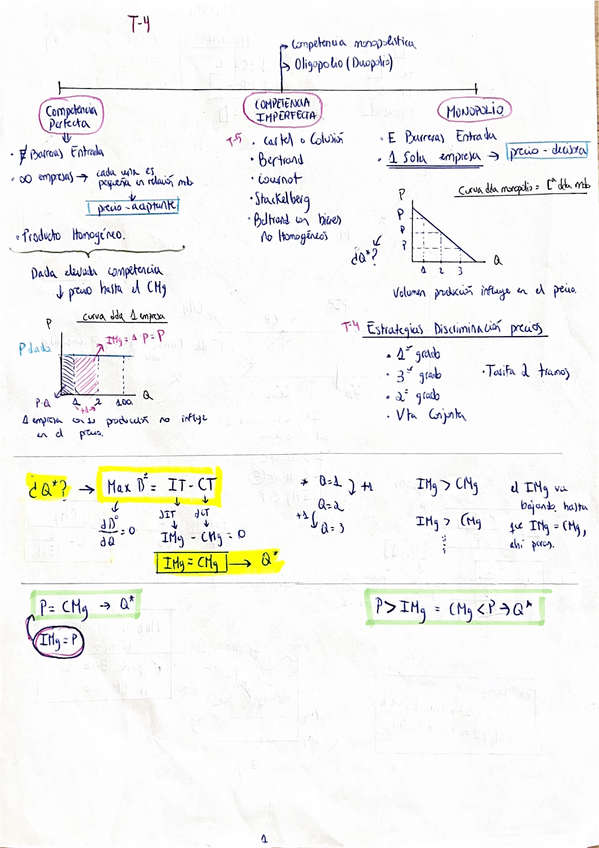 T-4
Competencia monopolística
Oligopolio (Duopolio)
Competencia Perfecta
COMPETENCIA IMPERFECTA
MONOPOLIO
• ∄ Barreras Entrada
• ∞ empresas → cada una es
pequeña en relación mdo
precio-aceptante
• Producto Homogéneo.
Dada elevada competencia
↓ precio hasta el CMg
curva dda 1 empresa
P
IMg = 1 · P = P
P dado
P·Q
1
+1
2
100
Q
1 empresa con su producción no influye
en el precio.
T-5
• Cartel o Colusión
• Bertrand
• Cournot
• Stackelberg
• Beltrand con bienes
no Homogéneos
• E Barreras Entrada
• 1 Sola empresa → precio-decisor
curva dda monopolio = Cª dda mdo
P
P
P
P
1 2 3
Q
¿Q*?
Volumen producción influye en el precio.
T-4 Estrategias Discriminación precios
• 1er grado
• 3er grado
• Tarifa 2 tramos
• 2º grado
• Vta Conjunta
¿Q*? → Max Bº = IT - CT
dBº/dQ = 0
dIT
dCT
IMg - CMg = 0
IMg = CMg → Q*
* Q=1
+1
Q=2
+1
Q=3
IMg > CMg
IMg > CMg
el IMg va
bajando hasta
que IMg = CMg,
ahí paras.
P = CMg → Q*
IMg = P
P > IMg = CMg < P → Q*
1